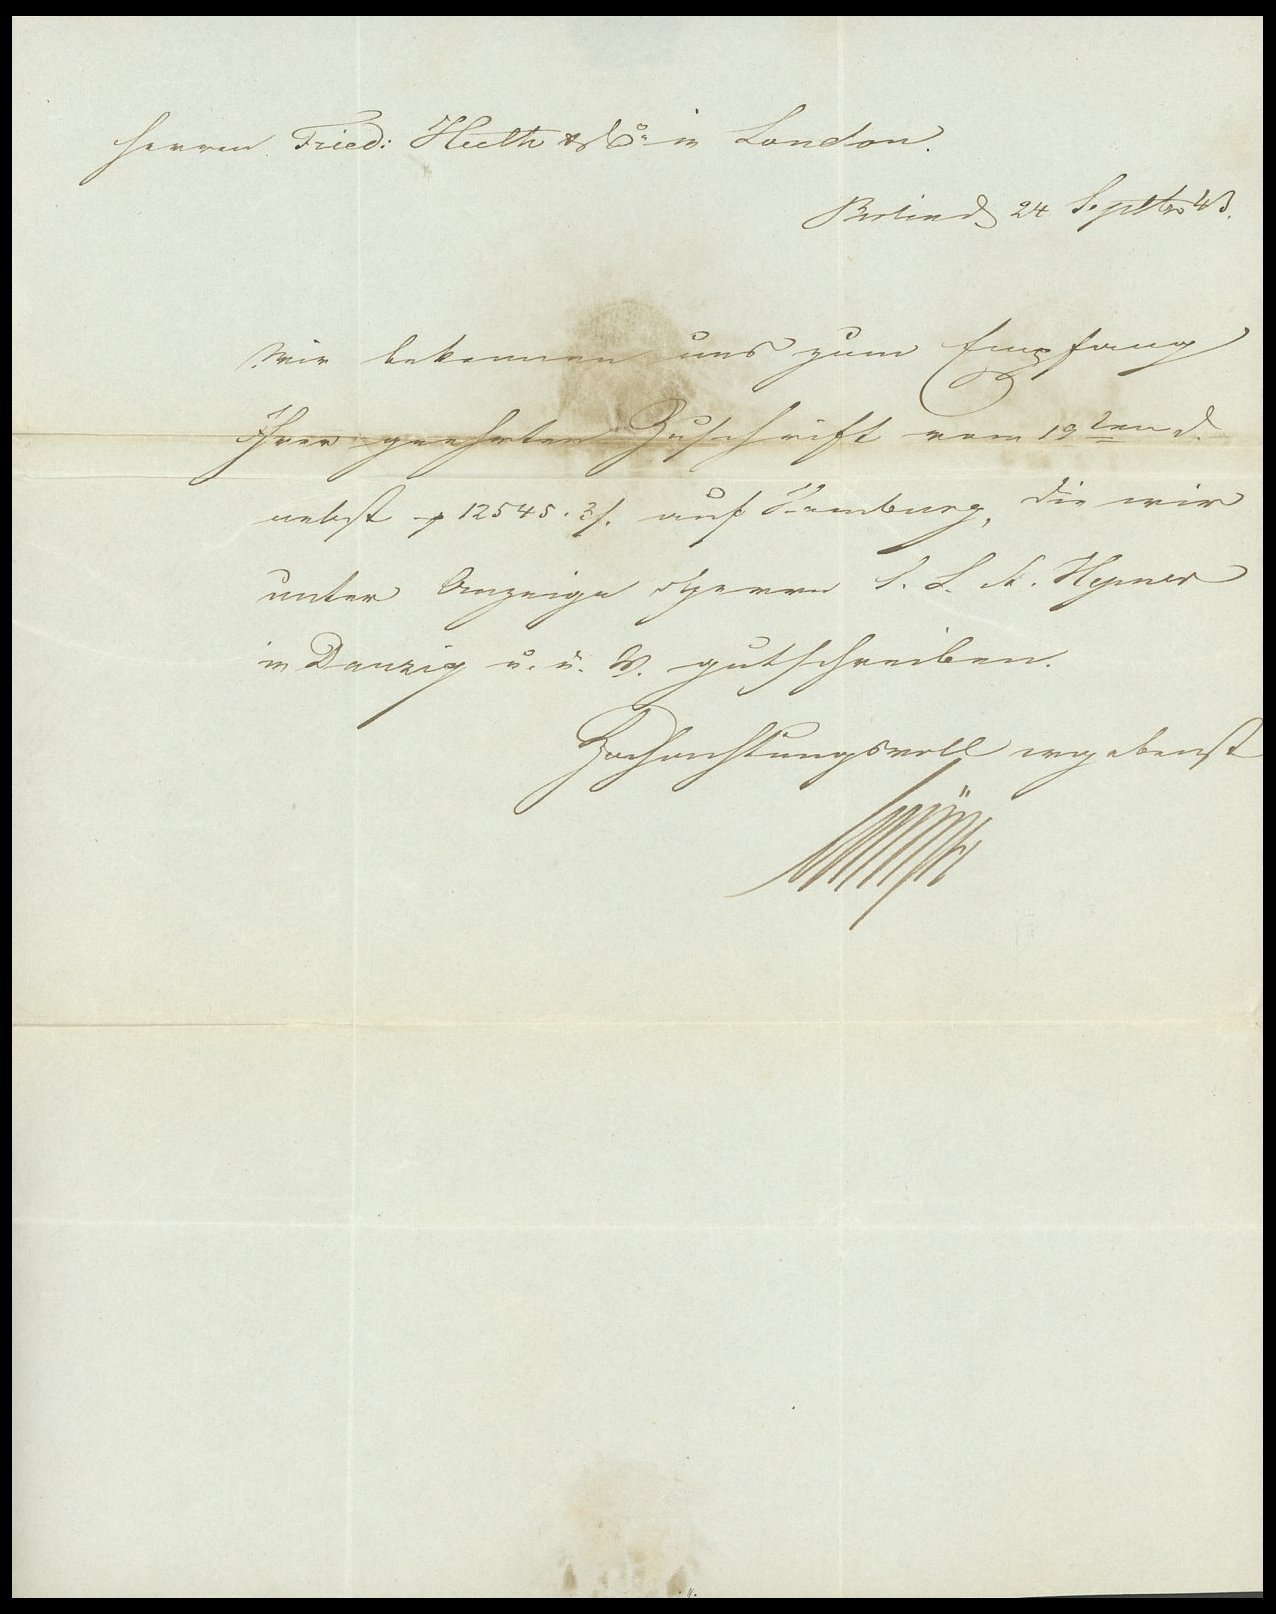 Herren Fried: Huth & Co in London.
Berlin d 24 Septbr 43.
Wir bekennen uns zum Empfang
Ihrer geehrten Zuschrift vom 19ten d.
nebst 12545. 3/. auf Hamburg, die wir
unter Anzeige Herrn S. L. A. Hepner
in Danzig u. ü. V. gutschreiben.
Hochachtungsvoll ergebenst